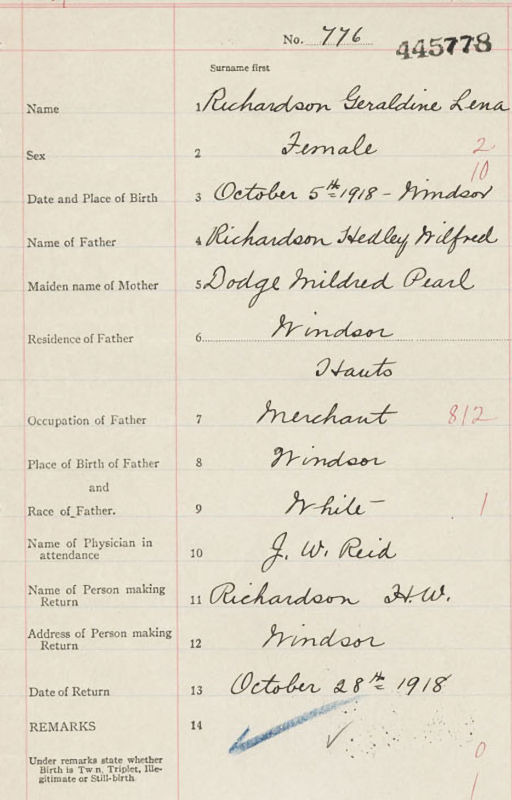 No. 776 445778
Surname first
Name 1 Richardson Geraldine Lena
Sex 2 Female 2
10
Date and Place of Birth 3 October 5th 1918 - Windsor
Name of Father 4 Richardson Hedley Wilfred
Maiden name of Mother 5 Dodge Mildred Pearl
Residence of Father 6 Windsor
Hants
Occupation of Father 7 Merchant 812
Place of Birth of Father 8 Windsor
and
Race of Father. 9 White 1
Name of Physician in
attendance 10 J. W. Reid
Name of Person making
Return 11 Richardson H.W.
Address of Person making
Return 12 Windsor
Date of Return 13 October 28th 1918
REMARKS 14
Under remarks state whether
Birth is Tw n, Triplet, Ille-
gitimate or Still-birth.
0
1